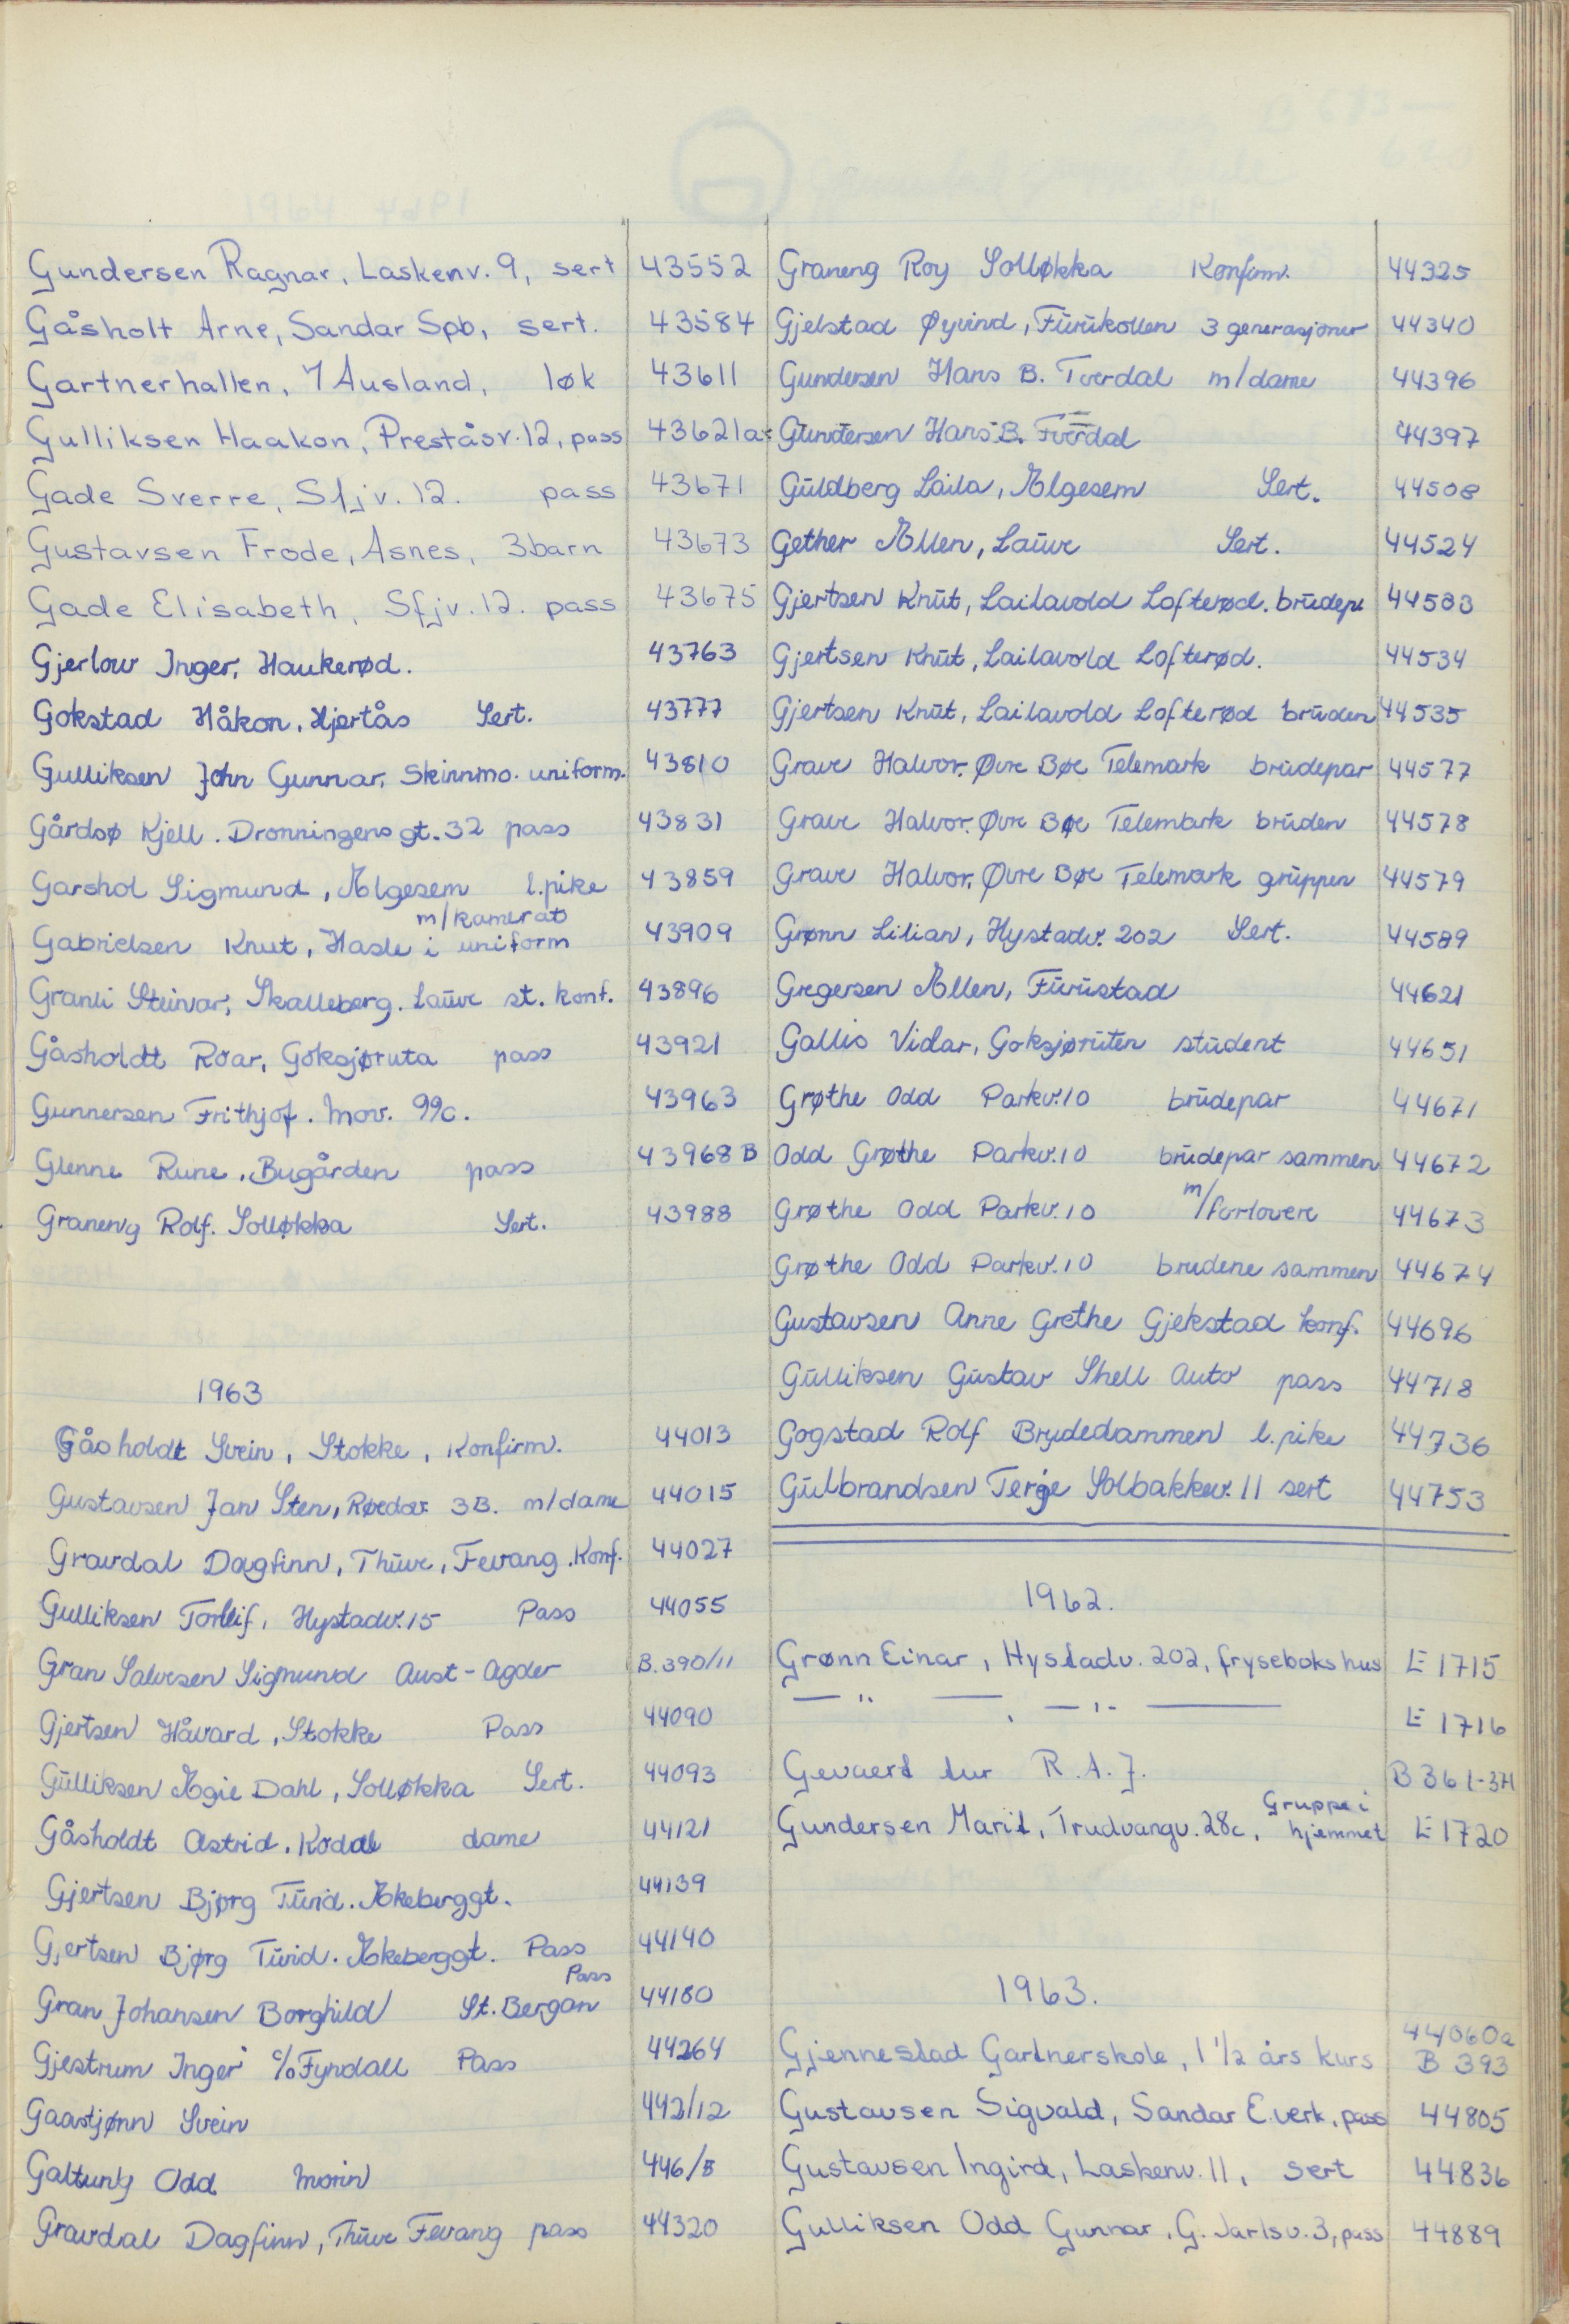 Gundersen Ragnar, Laskenv. 9, sert 43552
Gåsholt Arne, Sandar Spb, sert. 43584
Gartnerhallen, Ausland, løk 43611
Gulliksen Haakon, Preståsv. 12, pass 43621a
Gade Sverre, Sfjv. 12. pass 43671
Gustavsen Frode, Åsnes, 3 barn 43673
Gade Elisabeth, Sfjv. 12. pass 43675
Gjerlow Inger, Haukerød. 43763
Gokstad Håkon. Hjertås Sert. 43777
Gulliksen John Gunnar, Skinnmo. uniform. 43810
Gårdsø Kjell. Dronningens gt. 32 pass 43831
Garshol Sigmund, Elgesem l.pike 43859
m/kamerat
Gabrielsen Knut, Hasle i uniform 43909
Granli Steinar, Skalleberg. Lauve st. konf. 43896
Gåsholdt Roar, Goksjøruta pass 43921
Gunnersen Frithjof. Mov. 99c. 43963
Glenne Rune. Bugården pass 43968 B
Graneng Rolf. Solløkka Sert. 43988
1963
Gåsholdt Svein, Stokke, Konfirm. 44013
Gustavsen Jan Sten, 3B. m/dame 44015
Gravdal Dagfinn, Thūve, Fevang. Konf. 44027
Gulliksen Torleif, Hystadv. 15 Pass 44055
Gran Salvesen Sigmund Aust-Agder B. 390/11
Gjertsen Håvard, Stokke Pass 44090
Gūlliksen Dahl, Solløkka Sert. 44093
Gåsholdt Astrid. Kodal dame 44121
Gjertsen Bjørg Tūrid. Ekeberggt. 44139
Gjertsen Bjørg Tūrid. Ekeberggt. Pass 44140
Pass
Gran Johansen Borghild St. Bergan 44180
Gjestrum Inger c/o Fyndall Pass 44264
Gaastjønn Svein 442/12
Galtung Odd 446/5
Gravdal Dagfinn, Thūve Fevang pass 44320
Graneng Roy Solløkka Konfirm. 44325
Gjelstad Øyvind, Fūrūkollen 3 generasjoner 44340
Gundersen Hans B. Tverdal m/dame 44396
Gundersen Hans B. Tverdal 44397
Gūldberg Laila, Elgesem Sert. 44508
Gether Ellen, Laūve Sert. 44524
Gjertsen Knūt, Lailavold Lofterød. brūdep. 44533
Gjertsen Knūt, Lailavold Lofterød. 44534
Gjertsen Knūt, Lailavold Lofterød brūden 44535
Grave Halvor, Øvre Bøe Telemark brūdepar 44577
Grave Halvor, Øvre Bøe Telemark brūden 44578
Grave Halvor, Øvre Bøe Telemark grūppen 44579
Grønn Lilian, Hystadv. 202 Sert. 44589
Gregersen Ellen, Fūrūstad 44621
Gallis Vidar, Goksjørūten stūdent 44651
Grøthe Odd Parkv. 10 brūdepar 44671
Odd Grøthe Parkv. 10 brūdepar sammen 44672
Grøthe Odd Parkv. 10 m/forlovere 44673
Grøthe Odd Parkv. 10 brudene sammen 44674
Gustavsen Anne Grethe Gjekstad konf. 44696
Gūlliksen Gūstav Shell Auto pass 44718
Gogstad Rolf Brydedammen l.pike 44736
Gūlbrandsen Terje Solbakkev. 11 sert 44753
1962.
Grønn Einar, Hystadv. 202, frysebokshus E 1715
— " — , — " — E 1716
Gevaert tur R.A.J. B 361-371
Gruppe i
Gundersen Marit, Trudvangv. 28c, hjemmet E 1720
1963.
44060a
Gjennestad Gartnerskole, 1 1/2 års kurs B 393
Gustavsen Sigvald, Sandar E.verk, pass 44805
Gustavsen Ingird, Laskenv. 11, sert 44836
Gulliksen Odd Gunnar, G. Jarlsv. 3, pass 44889